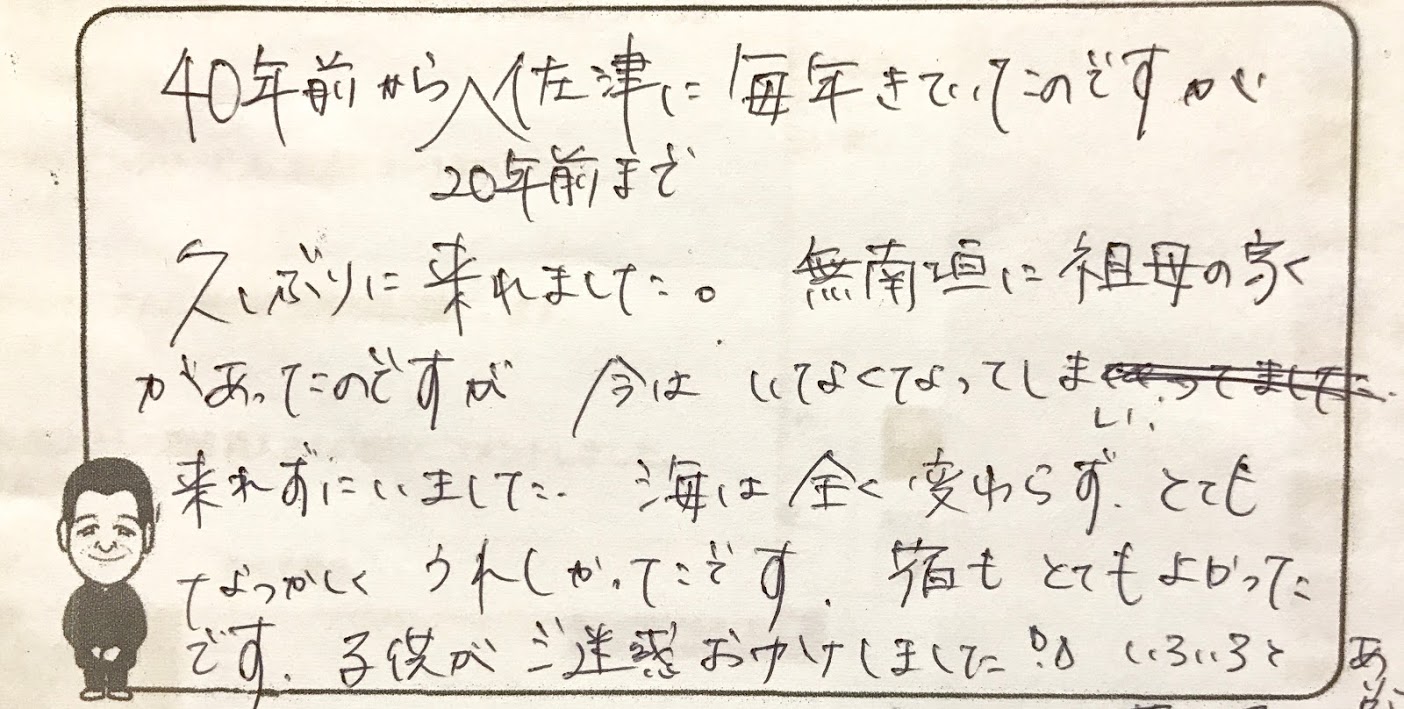 40年前から佐津に毎年きていたのですが
20年前まで
久しぶりに来れました。 無南垣に祖母の家
があったのですが 今は いなくなってしま
い、
来れずにいました。 海は全く変わらず、とても
なつかしく うれしかったです。 宿も とてもよかった
です。 子供がご迷惑おかけしました いろいろと
あ